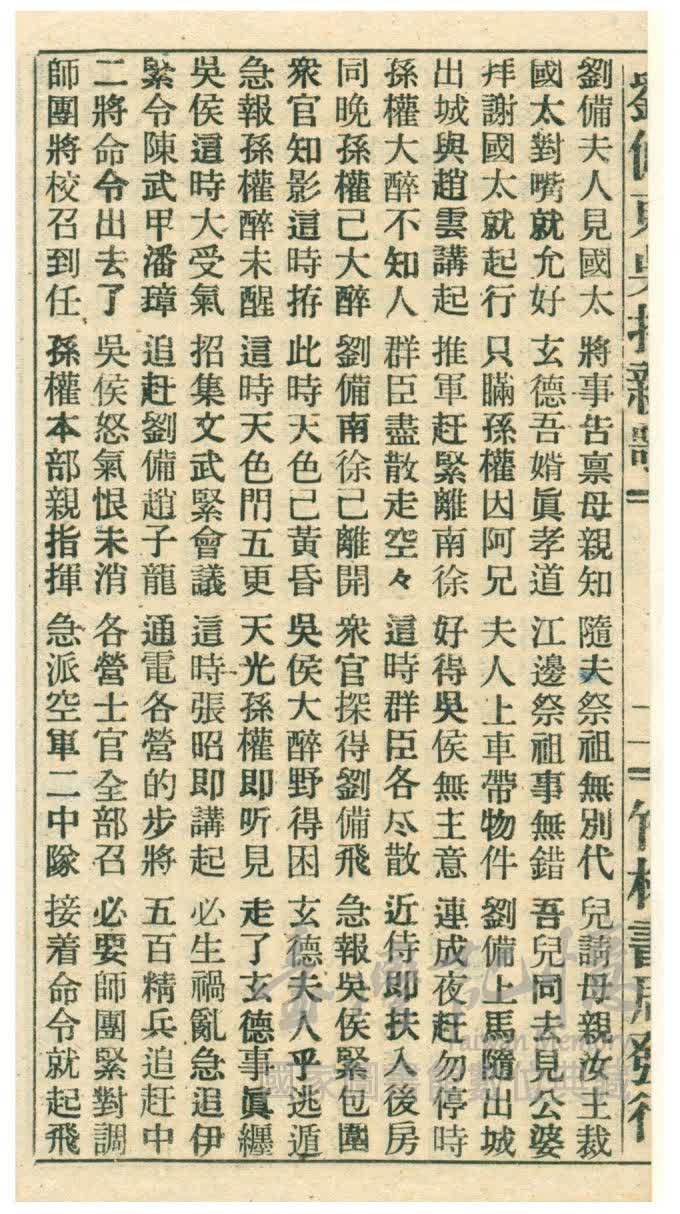 劉備東吳招親歌
二一
竹林書局發行
劉備夫人見國太 將事告禀母親知 隨夫祭祖無別代 兒請母親汝主裁
國太對嘴就允好 玄德吾婿眞孝道 江邊祭祖事無錯 吾兒同去見公婆
拜謝國太就起行 只瞞孫權因阿兄 夫人上車帶物件 劉備上馬隨出城
出城與趙雲講起 推軍赶緊離南徐 好得吳侯無主意 連成夜赶勿停時
孫權大醉不知人 群臣盡散走空々 這時群臣各尽散 近侍即扶入後房
同晚孫權己大醉 劉備南徐己離開 衆官探得劉備飛 急報吳侯緊包圍
衆官知影這時拵 此時天色己黃昏 吳侯大醉野得困 玄德夫人乎逃遁
急報孫權醉未醒 這時天色閂五更 天光孫權即听見 走了玄德事眞纒
吳侯這時大受氣 招集文武緊會議 這時張昭即講起 必生禍亂急追伊
緊令陳武甲潘璋 追赶劉備趙子龍 通電各營的步將 五百精兵追赶中
二將命令出去了 吳侯怒氣恨未消 各營士官全部召 必要師團緊對調
師團將校召到任 孫權本部親指揮 急派空軍二中隊 接着命令就起飛
臺灣記憶
Taiwan Memory
國家圖書館數位典藏